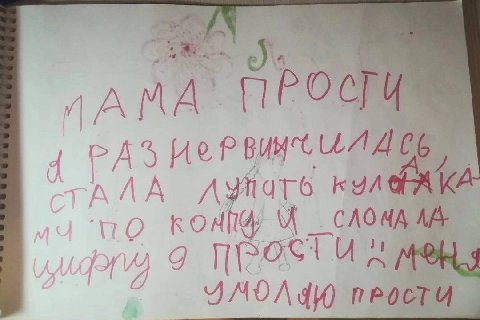 МАМА ПРОСТИ
Я РАЗНЕРВИНЧИЛАСЬ,
СТАЛА ЛУПИТЬ КУЛАКА-
МИ ПО КОМПУ И СЛОМАЛА
ЦИФРУ 9 ПРОСТИ :( МЕНЯ
УМОЛЯЮ ПРОСТИ